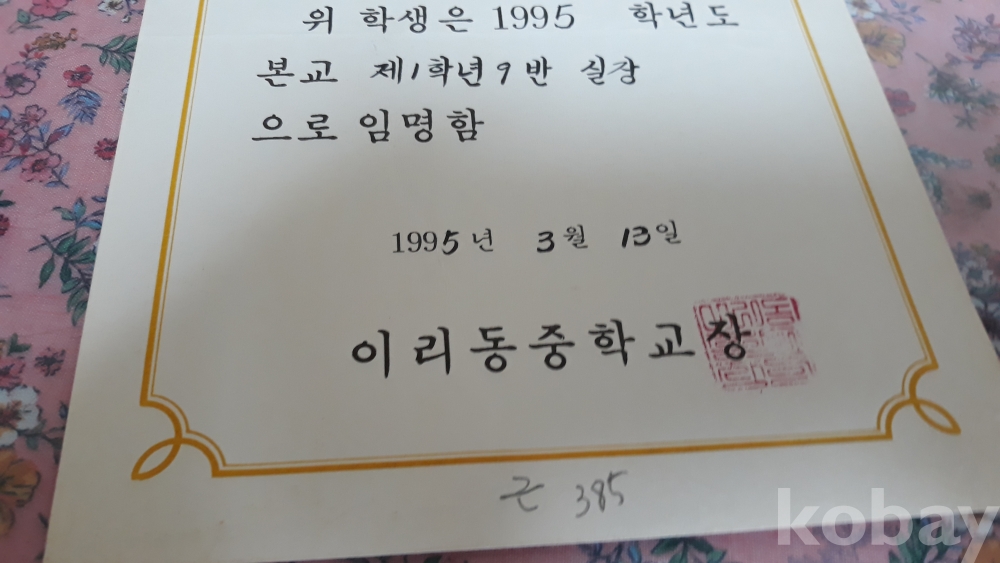 위 학생은 1995 학년도
본교 제1학년 9 반 실장
으로 임명함
1995년 3월 13일
이리동중학교장
385
kobay